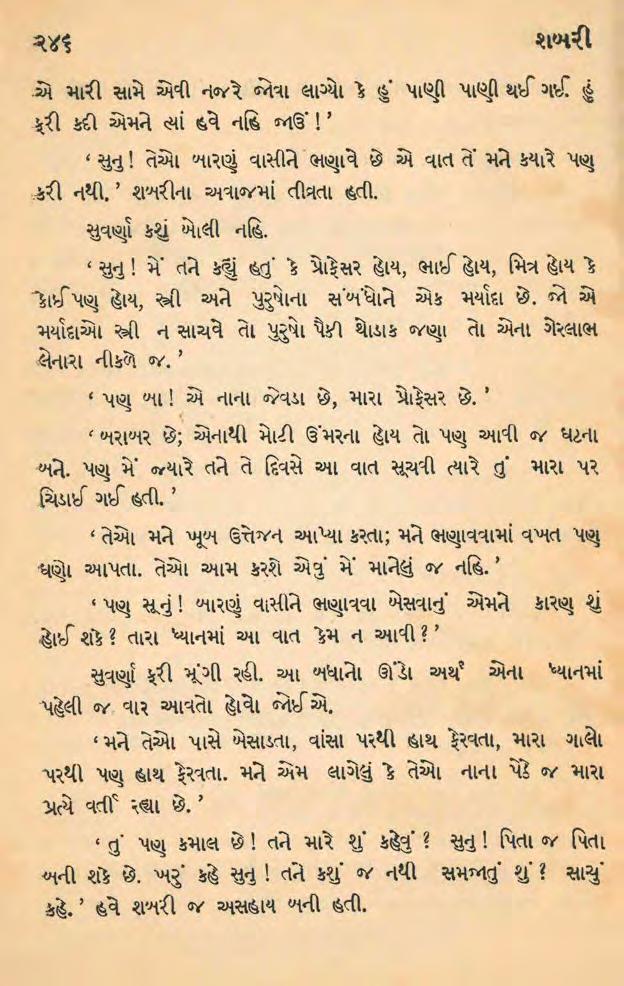 ૨૪૬ શબરી
એ મારી સામે એવી નજરે જોવા લાગ્યો કે હું પાણી પાણી થઈ ગઈ. હું
ફરી કદી એમને ત્યાં હવે નહિ જાઉં !’
‘ સુનુ ! તેઓ બારણું વાસીને ભણાવે છે એ વાત તેં મને કયારે પણ
કરી નથી. ’ શબરીના અવાજમાં તીવ્રતા હતી.
સુવર્ણા કશું બોલી નહિ.
‘ સુનુ ! મેં તને કહ્યું હતું કે પ્રોફેસર હોય, ભાઈ હોય, મિત્ર હોય કે
કોઈ પણ હોય, સ્ત્રી અને પુરુષોના સંબંધોને એક મર્યાદા છે. જો એ
મર્યાદાઓ સ્ત્રી ન સાચવે તો પુરુષો પૈકી થોડાક જણા તો એના ગેરલાભ
લેનારા નીકળે જ. ’
‘ પણ બા ! એ નાના જેવડા છે, મારા પ્રોફેસર છે. ’
‘ બરાબર છે; એનાથી મોટી ઉંમરના હોય તો પણ આવી જ ઘટના
બને. પણ મેં જ્યારે તને તે દિવસે આ વાત સૂચવી ત્યારે તું મારા પર
ચિડાઈ ગઈ હતી. ’
‘ તેઓ મને ખૂબ ઉત્તેજન આપ્યા કરતા; મને ભણાવવામાં વખત પણ
ઘણો આપતા. તેઓ આમ કરશે એવું મેં માનેલું જ નહિ. ’
‘ પણ સૂનું ! બારણું વાસીને ભણાવવા બેસવાનું એમને કારણ શું
હોઈ શકે ? તારા ધ્યાનમાં આ વાત કેમ ન આવી ? ’
સુવર્ણા ફરી મૂંગી રહી. આ બધાનો ઊંડો અર્થ એના ધ્યાનમાં
પહેલી જ વાર આવતો હોવો જોઈએ.
‘ મને તેઓ પાસે બેસાડતા, વાંસા પરથી હાથ ફેરવતા, મારા ગાલો
પરથી પણ હાથ ફેરવતા. મને એમ લાગેલું કે તેઓ નાના પેઠે જ મારા
પ્રત્યે વર્તી રહ્યા છે. ’
‘ તું પણ કમાલ છે ! તને મારે શું કહેવું ? સુનુ ! પિતા જ પિતા
બની શકે છે. ખરું કહે સુનુ ! તને કશું જ નથી સમજાતું શું ? સાચું
કહે. ’ હવે શબરી જ અસહાય બની હતી.